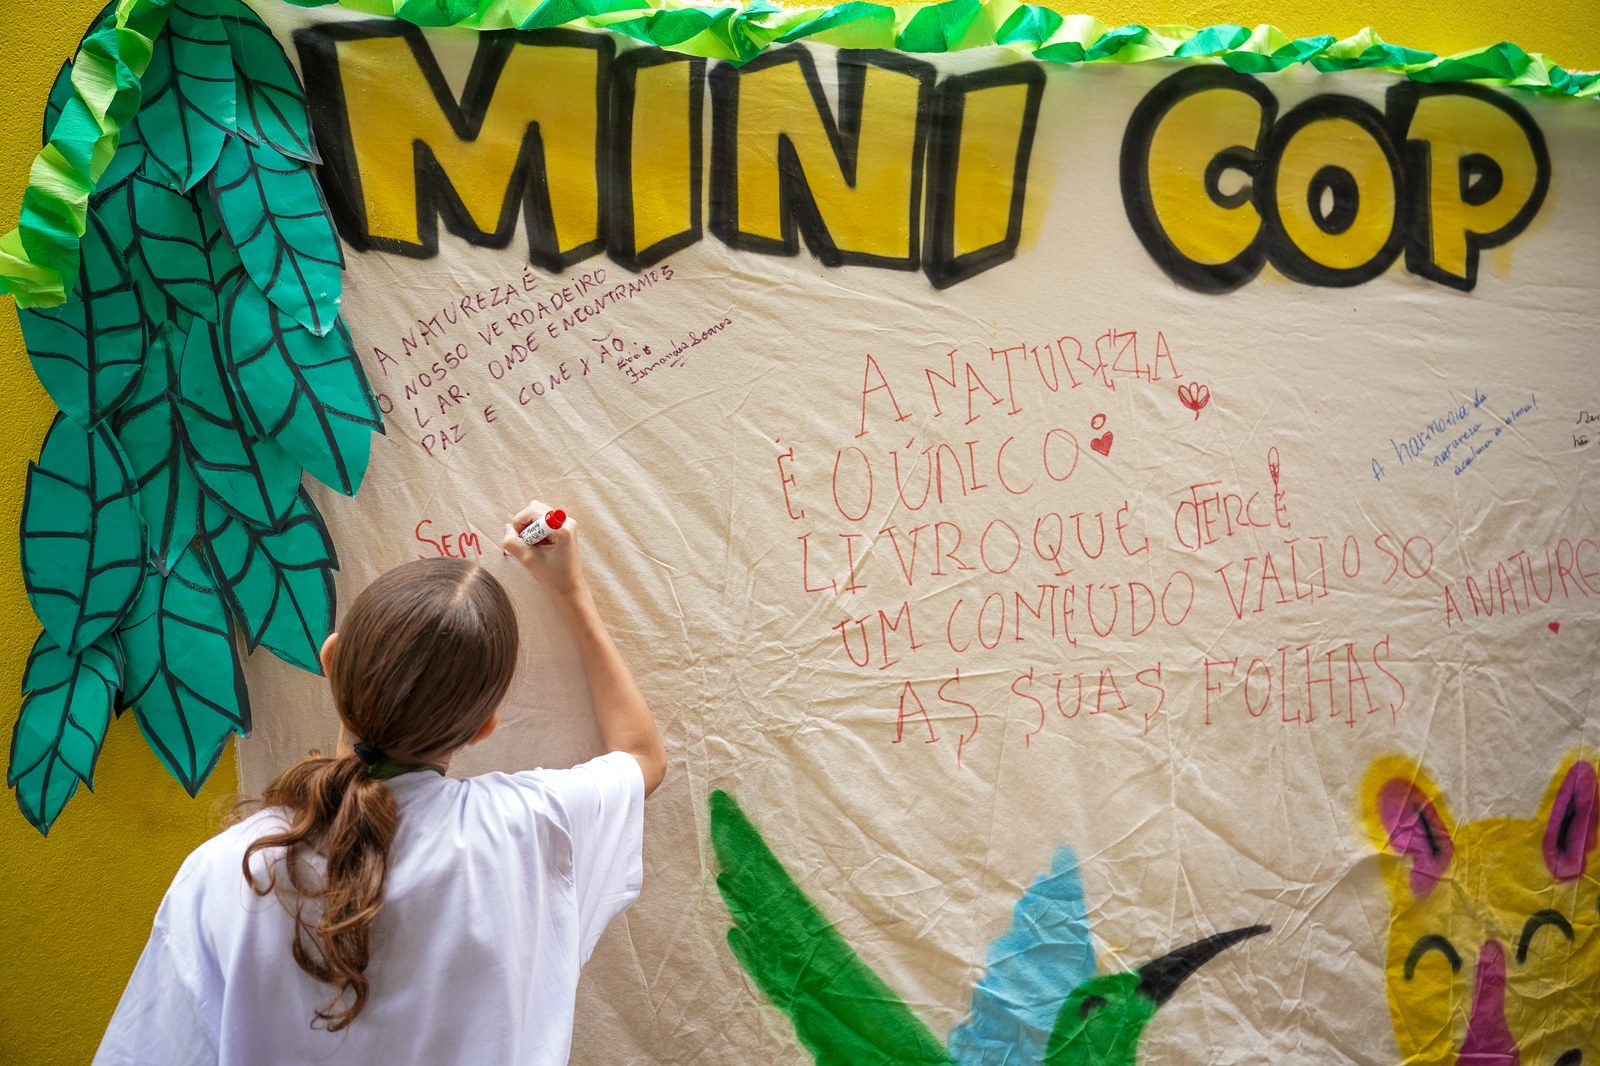 MINI COP
A NATUREZA É
O NOSSO VERDADEIRO
LAR. ONDE ENCONTRAMOS
PAZ E CONEXÃO
SEM
A NATUREZA
É O ÚNICO
LIVRO QUE OFERCE
UM CONTEÚDO VALIOSO
AS SUAS FOLHAS
A harmonia da
natureza
acalma a alma!
A NATURE